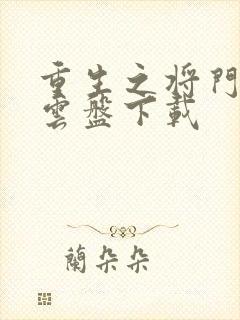 重生之将門
雲盤下載
蘭朵朵